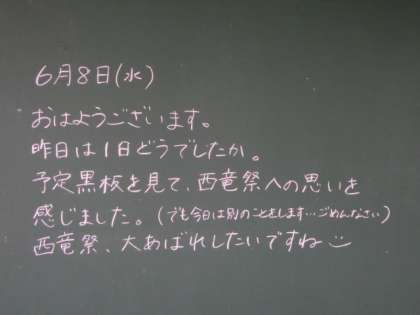 6月8日(水)
おはようございます。
昨日は1日どうでしたか。
予定黒板を見て、西竜祭への思いを
感じました。(でも今日は別のことをします…ごめんなさい)
西竜祭、大あばれしたいですね